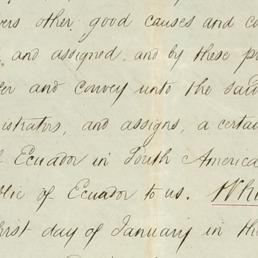 other good causes and
and assigned, and by these
and convey unto the said
and assigns, a certain
Ecuador in South America
of Ecuador to us.
first day of January in the